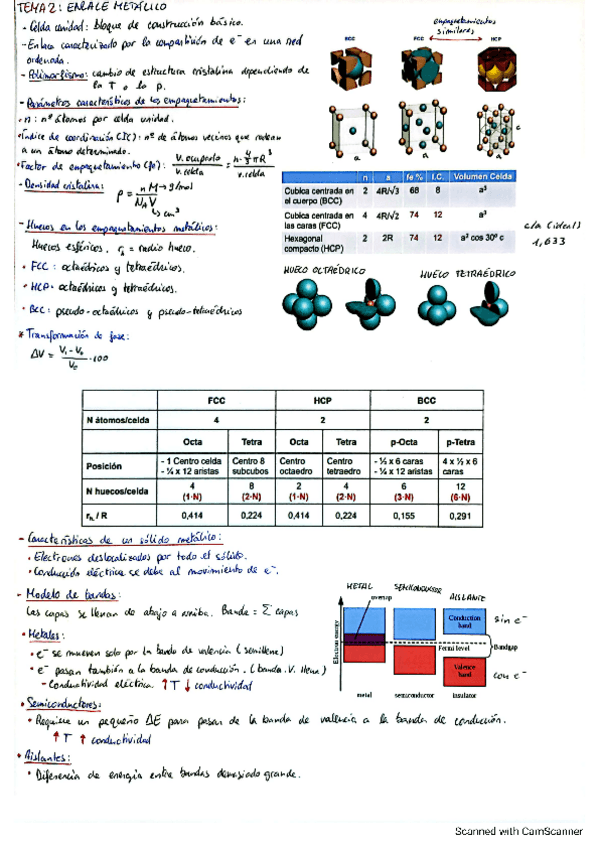 TEMA 2: ENLACE METÁLICO
- Celda unidad: bloque de construcción básico.
- Enlace caracterizado por la compartición de e⁻ en una red
ordenada.
- Polimorfismo: cambio de estructura cristalina dependiendo de
la T o la p.
- Parámetros característicos de los empaquetamientos:
· n: nº átomos por celda unidad.
· Índice de coordinación (IC): nº de átomos vecinos que rodean
a un átomo determinado.
· Factor de empaquetamiento (fe): V. ocupado / V. celda = n · 4/3 π R³ / V. celda
- Densidad cristalina: ρ = n M → g/mol / N_A V ↳ cm³
- Huecos en los empaquetamientos metálicos:
Huecos esféricos. r_h = radio hueco.
· FCC: octaédricos y tetraédricos.
· HCP: octaédricos y tetraédricos.
· BCC: pseudo-octaédricos y pseudo-tetraédricos
* Transformación de fase:
ΔV = V₁ - V₀ / V₀ · 100
empaquetamientos
similares
BCC FCC HCP
a a a c
n a fe % I.C. Volumen Celda
Cubica centrada en el cuerpo (BCC) 2 4R/√3 68 8 a³
Cubica centrada en las caras (FCC) 4 4R/√2 74 12 a³
Hexagonal compacto (HCP) 2 2R 74 12 a² cos 30º c
c/a (ideal)
1,633
HUECO OCTAÉDRICO HUECO TETRAÉDRICO
FCC HCP BCC
N átomos/celda 4 2 2
Octa Tetra Octa Tetra p-Octa p-Tetra
Posición - 1 Centro celda - ¼ x 12 aristas Centro 8 subcubos Centro octaedro Centro tetraedro - ½ x 6 caras - ¼ x 12 aristas 4 x ½ x 6 caras
N huecos/celda 4 (1·N) 8 (2·N) 2 (1·N) 4 (2·N) 6 (3·N) 12 (6·N)
r_h / R 0,414 0,224 0,414 0,224 0,155 0,291
- Características de un sólido metálico:
· Electrones deslocalizados por todo el sólido.
· Conducción eléctrica se debe al movimiento de e⁻.
- Modelo de bandas:
Las capas se llenan de abajo a arriba. Banda = Σ capas
· Metales:
· e⁻ se mueven solo por la banda de valencia (semillena)
· e⁻ pasan también a la banda de conducción. (banda V. llena)
- Conductividad eléctrica. ↑ T ↓ conductividad
· Semiconductores:
· Requiere un pequeño ΔE para pasar de la banda de valencia a la banda de conducción.
↑ T ↑ conductividad
· Aislantes:
· Diferencia de energía entre bandas demasiado grande.
METAL SEMICONDUCTOR AISLANTE
overlap
Electron energy
Conduction band
sin e⁻
Fermi level
Bandgap
Valence band
con e⁻
metal semiconductor insulator
Scanned with CamScanner